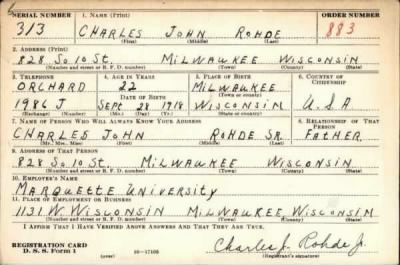 SERIAL NUMBER 1. NAME (Print) ORDER NUMBER
313 CHARLES JOHN ROHDE 883
(First) (Middle) (Last)
2. ADDRESS (Print)
828 SO. 10 ST. MILWAUKEE WISCONSIN
(Number and street or R. F. D. number) (Town) (County) (State)
3. TELEPHONE 4. AGE IN YEARS 5. PLACE OF BIRTH 6. COUNTRY OF CITIZENSHIP
ORCHARD 22 MILWAUKEE
DATE OF BIRTH (Town or county)
1986 J SEPT 28 1918 WISCONSIN U.S.A
(Exchange) (Number) (Mo.) (Day) (Yr.) (State or country)
7. NAME OF PERSON WHO WILL ALWAYS KNOW YOUR ADDRESS 8. RELATIONSHIP OF THAT PERSON
CHARLES JOHN ROHDE SR. FATHER
(Mr., Mrs., Miss) (First) (Middle) (Last)
9. ADDRESS OF THAT PERSON
828 SO. 10 ST. MILWAUKEE WISCONSIN
(Number and street or R. F. D. number) (Town) (County) (State)
10. EMPLOYER'S NAME
MARQUETTE UNIVERSITY
11. PLACE OF EMPLOYMENT OR BUSINESS
1131 W WISCONSIN MILWAUKEE WISCONSIN
(Number and street or R. F. D. number) (Town) (County) (State)
I AFFIRM THAT I HAVE VERIFIED ABOVE ANSWERS AND THAT THEY ARE TRUE.
REGISTRATION CARD Charles J. Rohde Jr.
D. S. S. Form 1 (over) 16-17105 (Registrant's signature)